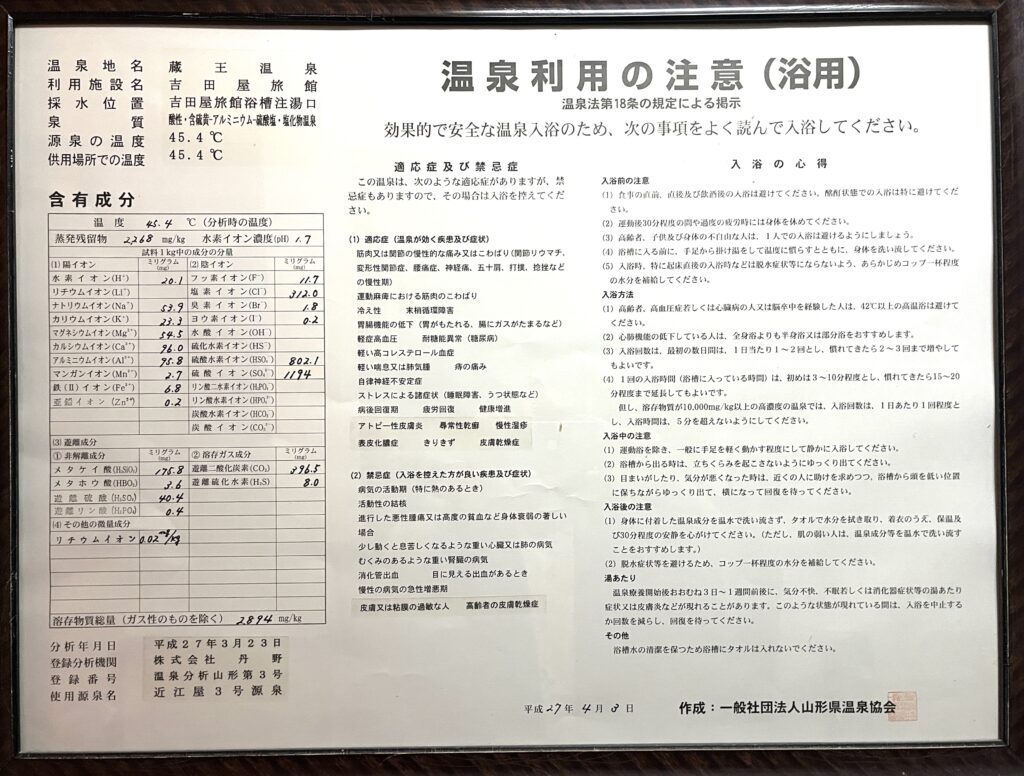 温泉地名 蔵王温泉
利用施設名 吉田屋旅館
採水位置 吉田屋旅館浴槽注湯口
泉質 酸性・含硫黄-アルミニウム-硫酸塩・塩化物温泉
源泉の温度 45.4℃
供用場所での温度 45.4℃
含有成分
温度 45.4 ℃ (分析時の温度)
蒸発残留物 2,268 mg/kg 水素イオン濃度(pH) 1.7
試料1kg中の成分の分量
(1) 陽イオン ミリグラム(mg) (2) 陰イオン ミリグラム(mg)
水素イオン(H⁺) 20.1 フッ素イオン(F⁻) 11.7
リチウムイオン(Li⁺) 塩素イオン(Cl⁻) 312.0
ナトリウムイオン(Na⁺) 53.9 臭素イオン(Br⁻) 1.8
カリウムイオン(K⁺) 23.3 ヨウ素イオン(I⁻) 0.2
マグネシウムイオン(Mg²⁺) 54.5 水酸イオン(OH⁻)
カルシウムイオン(Ca²⁺) 96.0 硫化水素イオン(HS⁻)
アルミニウムイオン(Al³⁺) 95.8 硫酸水素イオン(HSO₄⁻) 802.1
マンガンイオン(Mn²⁺) 2.7 硫酸イオン(SO₄²⁻) 1194
鉄(Ⅱ)イオン(Fe²⁺) 6.8 リン酸二水素イオン(H₂PO₄⁻)
亜鉛イオン(Zn²⁺) 0.2 リン酸水素イオン(HPO₄²⁻)
炭酸水素イオン(HCO₃⁻)
炭酸イオン(CO₃²⁻)
(3) 遊離成分
① 非解離成分 ミリグラム(mg) ② 溶存ガス成分 ミリグラム(mg)
メタケイ酸(H₂SiO₃) 175.8 遊離二酸化炭素(CO₂) 396.5
メタホウ酸(HBO₂) 3.6 遊離硫化水素(H₂S) 8.0
遊離硫酸(H₂SO₄) 40.4
遊離リン酸(H₃PO₄) 0.4
(4) その他の微量成分
リチウムイオン 0.02 mg/kg
溶存物質総量(ガス性のものを除く) 2894 mg/kg
分析年月日 平成27年3月23日
登録分析機関 株式会社 丹野
登録番号 温泉分析山形第3号
使用源泉名 近江屋3号源泉
温泉利用の注意(浴用)
温泉法第18条の規定による掲示
効果的で安全な温泉入浴のため、次の事項をよく読んで入浴してください。
適応症及び禁忌症
この温泉は、次のような適応症がありますが、禁
忌症もありますので、その場合は入浴を控えてくだ
さい。
(1) 適応症(温泉が効く疾患及び症状)
筋肉又は関節の慢性的な痛み又はこわばり(関節リウマチ、
変形性関節症、腰痛症、神経痛、五十肩、打撲、捻挫など
の慢性期)
運動麻痺における筋肉のこわばり
冷え性 末梢循環障害
胃腸機能の低下(胃がもたれる、腸にガスがたまるなど)
軽症高血圧 耐糖能異常(糖尿病)
軽い高コレステロール血症
軽い喘息又は肺気腫 痔の痛み
自律神経不安定症
ストレスによる諸症状(睡眠障害、うつ状態など)
病後回復期 疲労回復 健康増進
アトピー性皮膚炎 尋常性乾癬 慢性湿疹
表皮化膿症 きりきず 皮膚乾燥症
(2) 禁忌症(入浴を控えた方が良い疾患及び症状)
病気の活動期(特に熱のあるとき)
活動性の結核
進行した悪性腫瘍又は高度の貧血など身体衰弱の著しい
場合
少し動くと息苦しくなるような重い心臓又は肺の病気
むくみのあるような重い腎臓の病気
消化管出血 目に見える出血があるとき
慢性の病気の急性増悪期
皮膚又は粘膜の過敏な人 高齢者の皮膚乾燥症
入浴の心得
入浴前の注意
(1) 食事の直前、直後及び飲酒後の入浴は避けてください。酩酊状態での入浴は特に避けてくだ
さい。
(2) 運動後30分程度の間や過度の疲労時には身体を休めてください。
(3) 高齢者、子供及び身体の不自由な人は、1人での入浴は避けるようにしましょう。
(4) 浴槽に入る前に、手足から掛け湯をして温度に慣らすとともに、身体を洗い流してください。
(5) 入浴時、特に起床直後の入浴時などは脱水症状等にならないよう、あらかじめコップ一杯程度
の水分を補給してください。
入浴方法
(1) 高齢者、高血圧症若しくは心臓病の人又は脳卒中を経験した人は、42℃以上の高温浴は避けて
ください。
(2) 心肺機能の低下している人は、全身浴よりも半身浴又は部分浴をおすすめします。
(3) 入浴回数は、最初の数日間は、1日当たり1～2回とし、慣れてきたら2～3回まで増やして
もよいです。
(4) 1回の入浴時間(浴槽に入っている時間)は、初めは3～10分程度とし、慣れてきたら15～20
分程度まで延長してもよいです。
但し、溶存物質が10,000mg/kg以上の高濃度の温泉では、入浴回数は、1日あたり1回程度と
し、入浴時間は、5分を超えないようにしてください。
入浴中の注意
(1) 運動浴を除き、一般に手足を軽く動かす程度にして静かに入浴してください。
(2) 浴槽から出る時は、立ちくらみを起こさないようにゆっくり出てください。
(3) 目まいがしたり、気分が悪くなった時は、近くの人に助けを求めつつ、浴槽から頭を低い位置
に保ちながらゆっくり出て、横になって回復を待ってください。
入浴後の注意
(1) 身体に付着した温泉成分を温水で洗い流さず、タオルで水分を拭き取り、着衣のうえ、保温及
び30分程度の安静を心がけてください。(ただし、肌の弱い人は、温泉成分等を温水で洗い流す
ことをおすすめします。)
(2) 脱水症状等を避けるため、コップ一杯程度の水分を補給してください。
湯あたり
温泉療養開始後おおむね3日～1週間前後に、気分不快、不眠若しくは消化器症状等の湯あたり
症状又は皮膚炎などが現れることがあります。このような状態が現れている間は、入浴を中止する
か回数を減らし、回復を待ってください。
その他
浴槽水の清潔を保つため浴槽にタオルは入れないでください。
平成27年4月8日 作成:一般社団法人山形県温泉協会